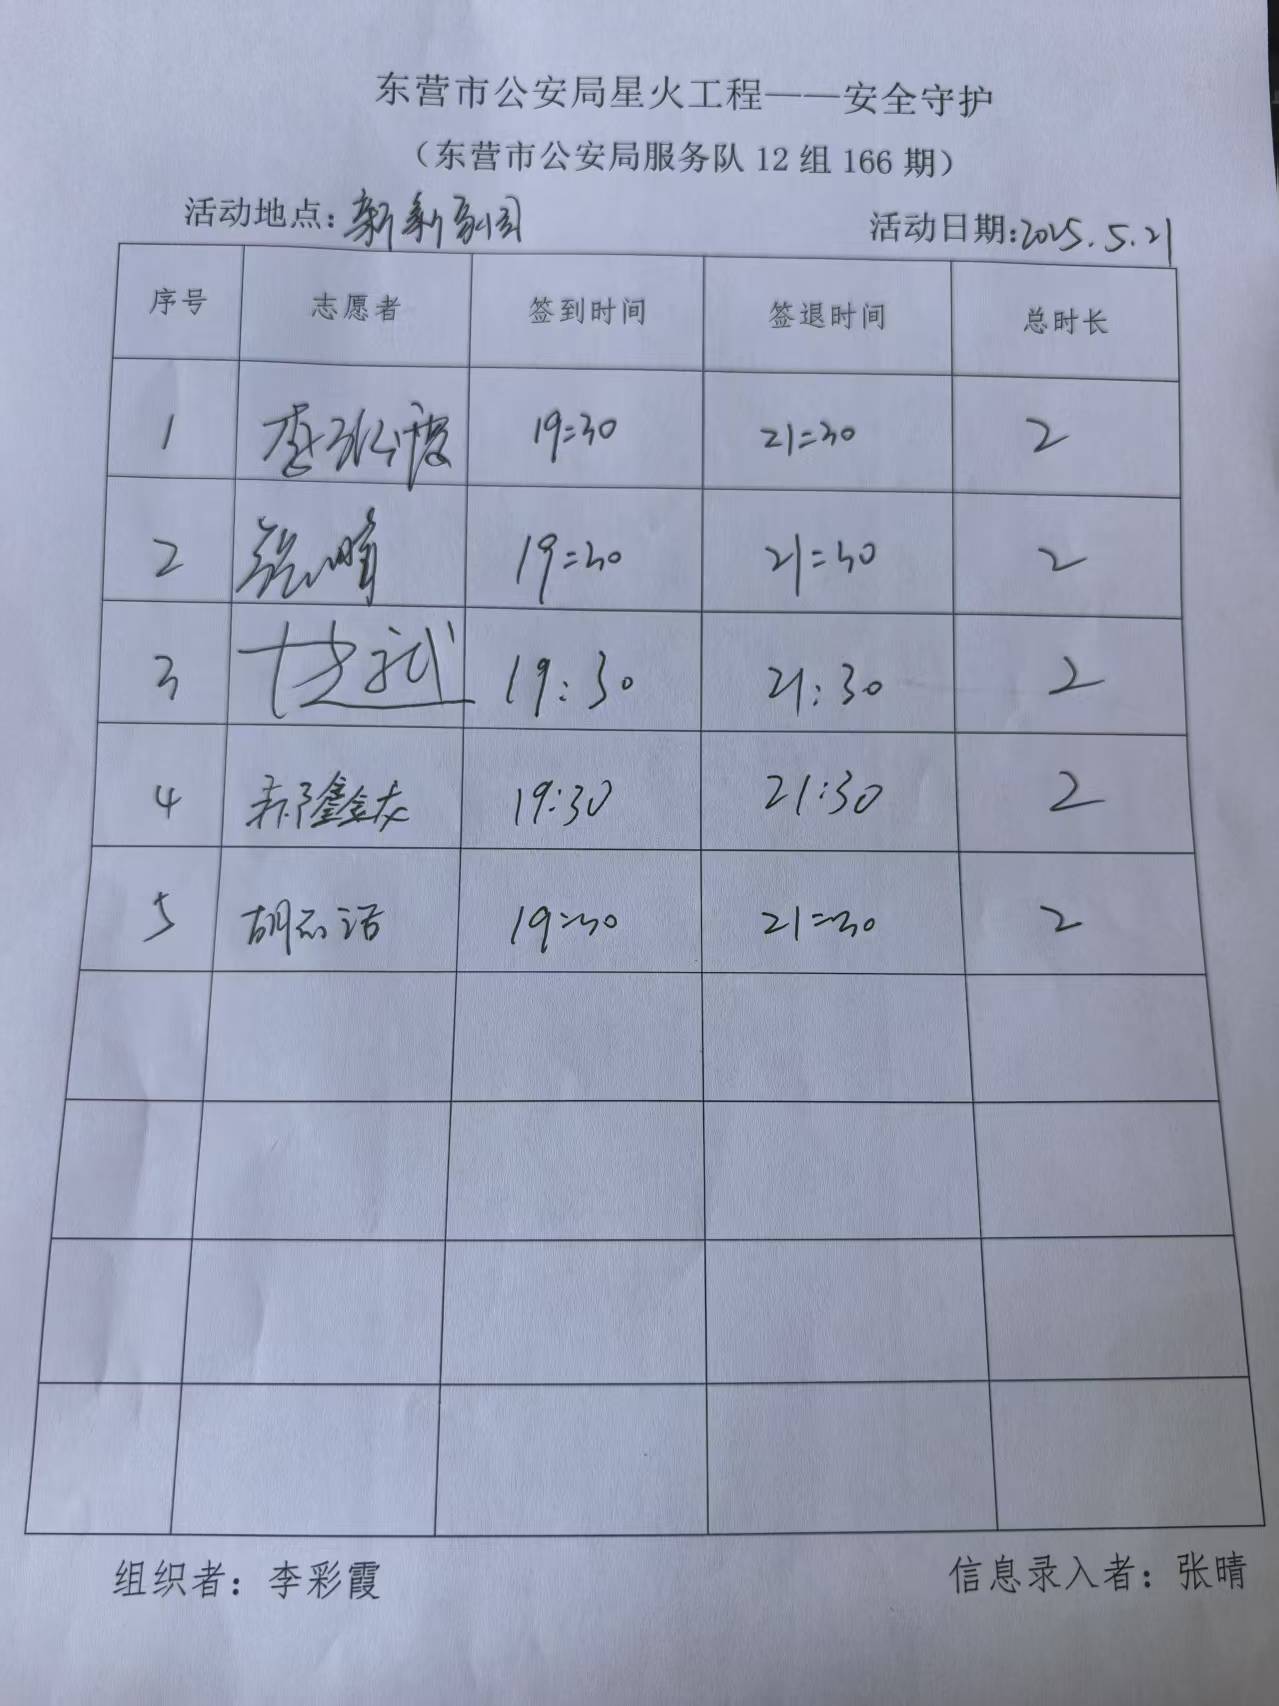 东营市公安局星火工程——安全守护
（东营市公安局服务队 12 组 166 期）
活动地点: 新新家园 活动日期:2025.5.21
序号 志愿者 签到时间 签退时间 总时长
1 19:30 21:30 2
2 19:30 21:30 2
3 19:30 21:30 2
4 19:30 21:30 2
5 胡 19:30 21:30 2
组织者：李彩霞 信息录入者：张晴